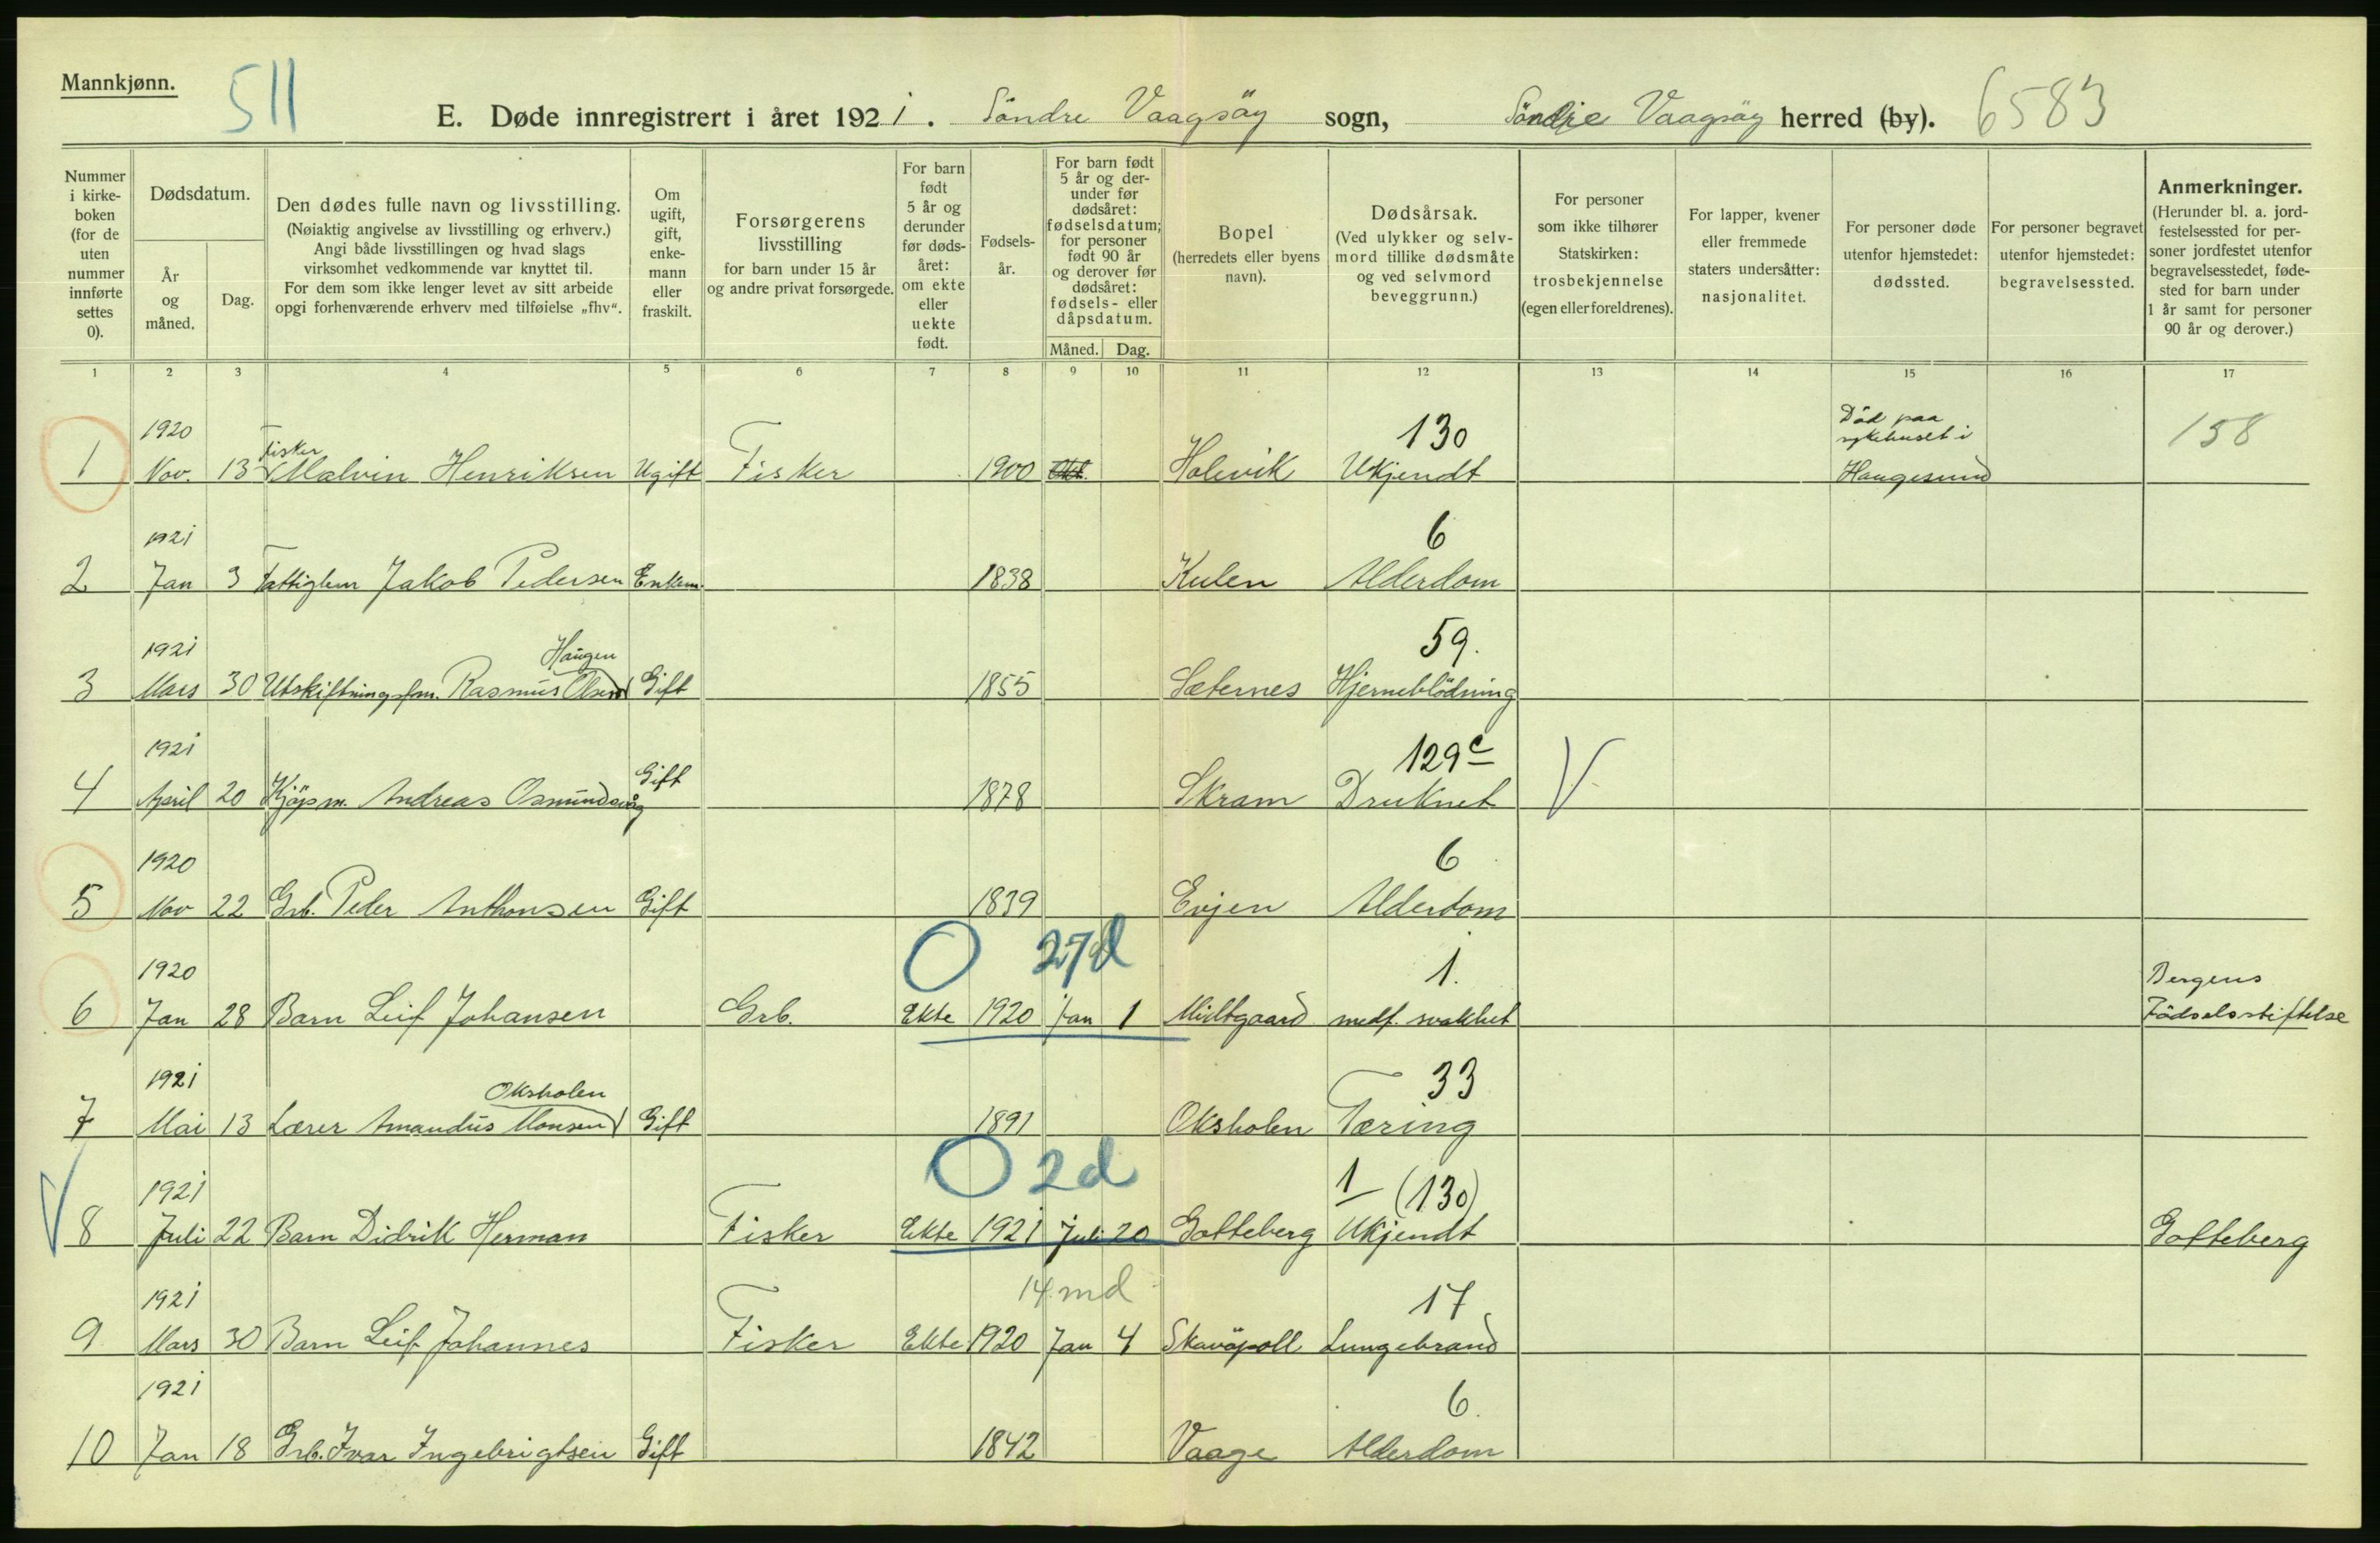 Mannkjønn.
511
E. Døde innregistrert i året 1921. Söndre Vaagsöy sogn, Söndre Vaagsöy herred (by). 6583
Nummer i kirke-boken (for de uten nummer innførte settes 0).
Dødsdatum.
År og måned.
Dag.
Den dødes fulle navn og livsstilling.
(Nøiaktig angivelse av livsstilling og erhverv.)
Angi både livsstillingen og hvad slags
virksomhet vedkommende var knyttet til.
For dem som ikke lenger levet av sitt arbeide
opgi forhenværende erhverv med tilføielse „fhv“.
Om ugift, gift, enke-mann eller fraskilt.
Forsørgerens livsstilling
for barn under 15 år
og andre privat forsørgede.
For barn født 5 år og derunder før døds-året: om ekte eller uekte født.
Fødsels-år.
For barn født 5 år og der-under før dødsåret: fødselsdatum; for personer født 90 år og derover før dødsåret: fødsels- eller dåpsdatum.
Måned. Dag.
Bopel
(herredets eller byens navn).
Dødsårsak.
(Ved ulykker og selv-mord tillike dødsmåte og ved selvmord beveggrunn.)
For personer som ikke tilhører Statskirken: trosbekjennelse (egen eller foreldrenes).
For lapper, kvener eller fremmede staters undersåtter: nasjonalitet.
For personer døde utenfor hjemstedet: dødssted.
For personer begravet utenfor hjemstedet: begravelsessted.
Anmerkninger.
(Herunder bl. a. jord-festelsessted for per-soner jordfestet utenfor begravelsesstedet, føde-sted for barn under 1 år samt for personer 90 år og derover.)
1 2 3 4 5 6 7 8 9 10 11 12 13 14 15 16 17
1920 Fisker 130 Död paa sykehuset i 158
1 Nov. 13 Malvin Henriksen Ugift Fisker 1900 Okt. Holevik Ukjendt Haugesund
1921 6
2 Jan 3 Fattiglem Jakob Pedersen Enkem. 1838 Kulen Alderdom
1921 Haugen 59.
3 Mars 30 Utskiftningsfm. Rasmus Olsen Gift 1855 Sæternes Hjerneblödning
1921 129c V
4 April 20 Kjöpm. Andreas Osmundsvåg Gift 1878 Skram Druknet
1920 6
5 Nov 22 Grb. Peder Anthonsen Gift 1839 Evjen Alderdom
1920 0 27d 1. Bergens
6 Jan 28 Barn Leif Johansen Grb. Ekte 1920 Jan 1 Midtgaard medf. svakhet Födselsstiftelse
1921 Oksholen 33
7 Mai 13 Lærer Amandus Monsen Gift 1891 Oksholen Tæring
1921 0 2d 1 (130)
V 8 Juli 22 Barn Didrik Herman Fisker Ekte 1921 Juli 20 Gotteberg Ukjendt Gotteberg
1921 14 md 17
9 Mars 30 Barn Leif Johannes Fisker Ekte 1920 Jan 4 Skavöpoll Lungebrand
1921 6.
10 Jan 18 Grb. Ivar Ingebrigtsen Gift 1842 Vaage Alderdom